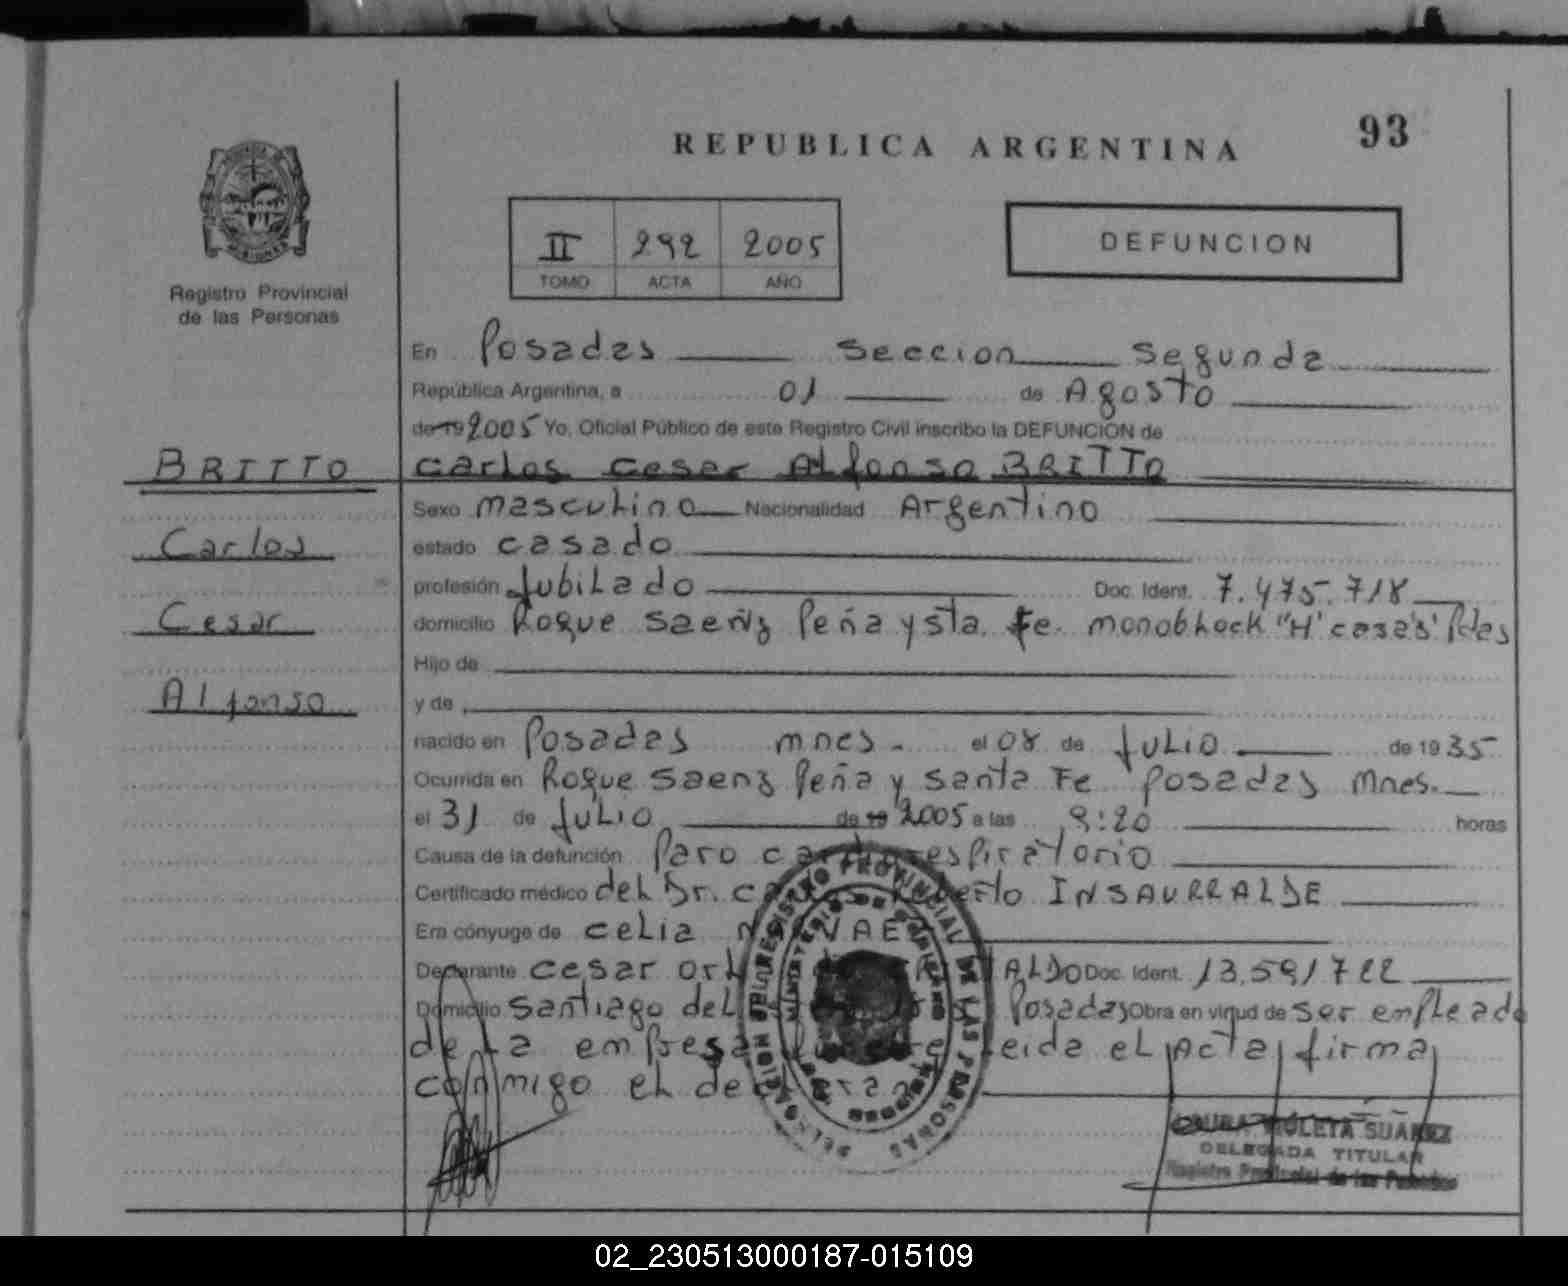 93
REPUBLICA ARGENTINA
II 292 2005
TOMO ACTA AÑO
DEFUNCION
Registro Provincial
de las Personas
En Posadas Seccion Segunda
República Argentina, a 01 de Agosto
de 19 2005 Yo, Oficial Público de este Registro Civil inscribo la DEFUNCION de
BRITTO Carlos Cesar Alfonso BRITTO
Sexo masculino Nacionalidad Argentino
Carlos
estado casado
profesión Jubilado Doc. Ident. 7.475.718
Cesar
domicilio Roque Saenz Peña y sta. Fe. monoblock "H" Pdas
Hijo de
Alfonso
y de
nacido en Posadas mnes. el 08 de Julio de 1935
Ocurrida en Roque Saenz Peña y Santa Fe Posadas Mnes.
el 31 de Julio de 19 2005 a las 9:20 horas
Causa de la defunción Paro respiratorio
Certificado médico del Dr. INSAURRALDE
Era cónyuge de Celia
Declarante Cesar ALDO Doc. Ident. 13.591722
Domicilio Santiago del Posadas Obra en virtud de ser empleado
de la empresa Leida el Acta, firma
conmigo el
REGISTRO PROVINCIAL DE LAS PERSONAS
VIOLETA SUAREZ
DELEGADA TITULAR
Registro Provincial de las Personas
02_230513000187-015109